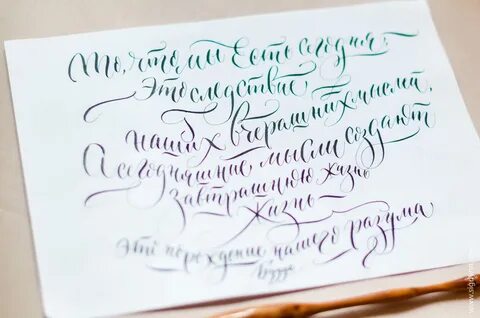 То, что мы есть сегодня,
Это следствие
наших вчерашних мыслей,
А сегодняшние мысли создают
завтрашнюю жизнь
жизнь —
Это порождение нашего разума
Будда